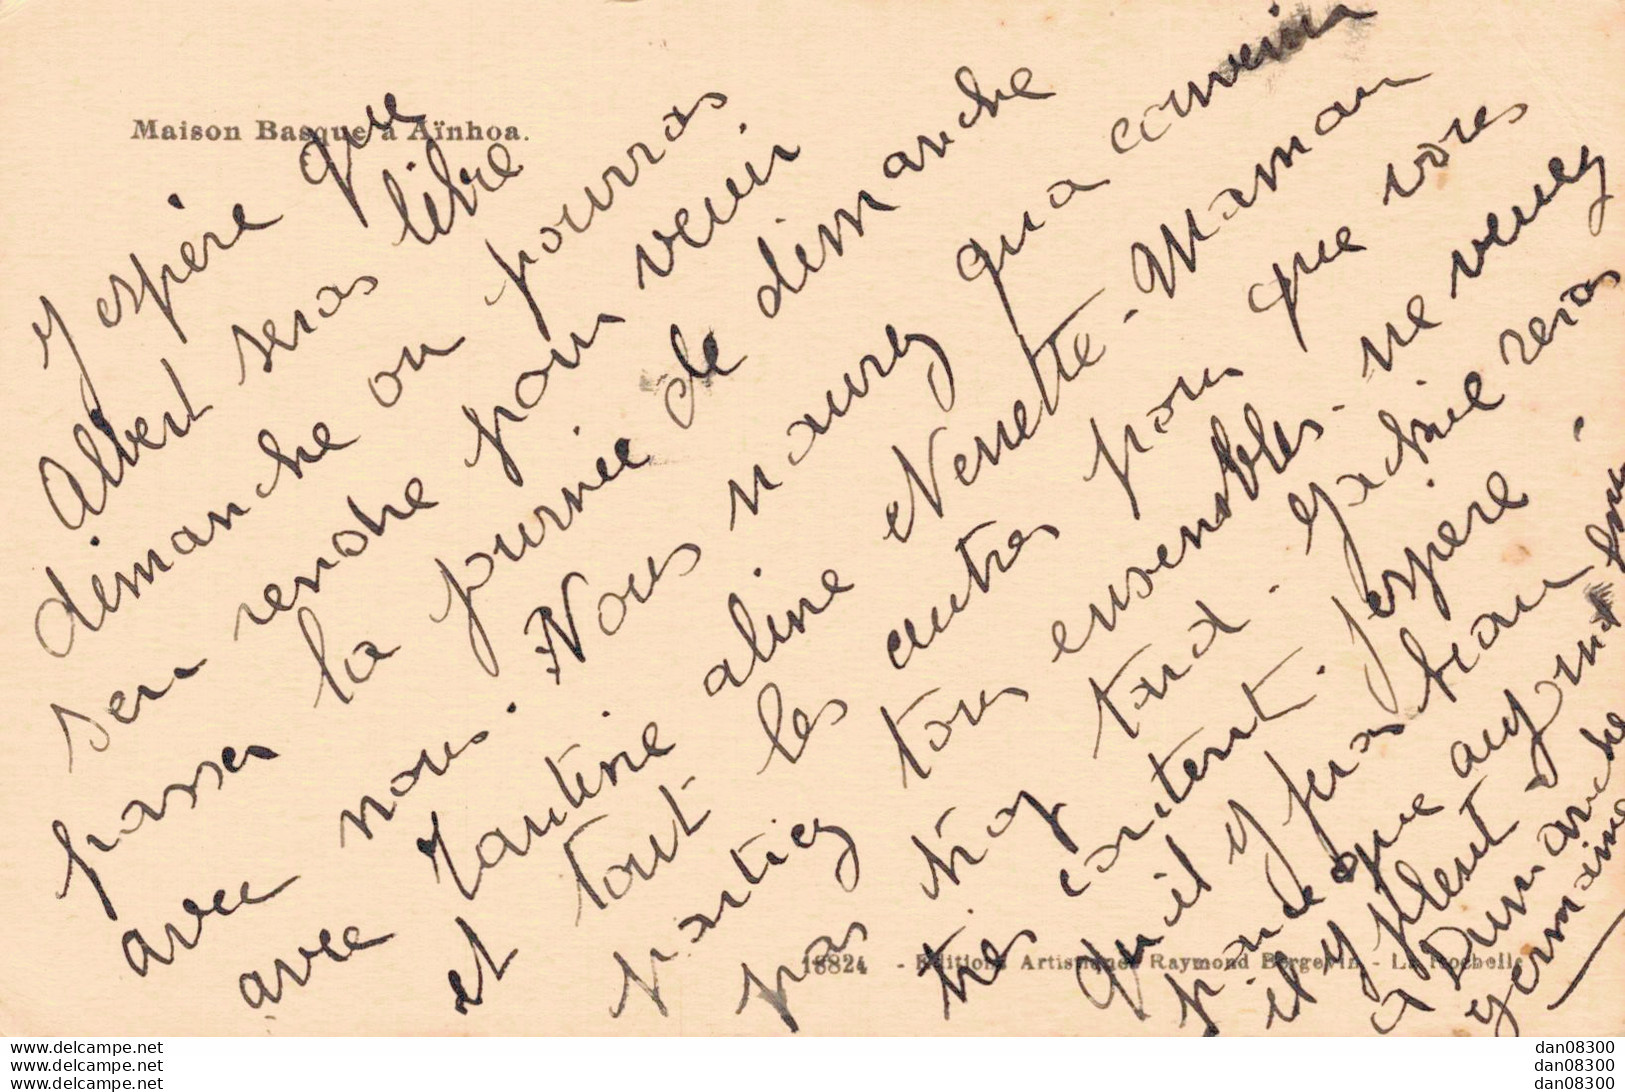 Maison Basque à Aïnhoa.
J espère que
Albert seras libre
dimanche ou pourras
sen rendre pour venir
passer la journée de dimanche
avec nous. Nous naurez qua convenir
avec Tantine aline et Nenette. Maman
et tout les autres pour que vous
partiez tous ensembles. ne venez
pas trop tard. Gachie seras
tres content. Jespère
quil y feras beau
parce que aujour
il y pleut
a Dimanche
Germaine
18824 - Editions Artistiques Raymond Bergevin - La Rochelle
www.delcampe.net
www.delcampe.net
www.delcampe.net
dan08300
dan08300
dan08300